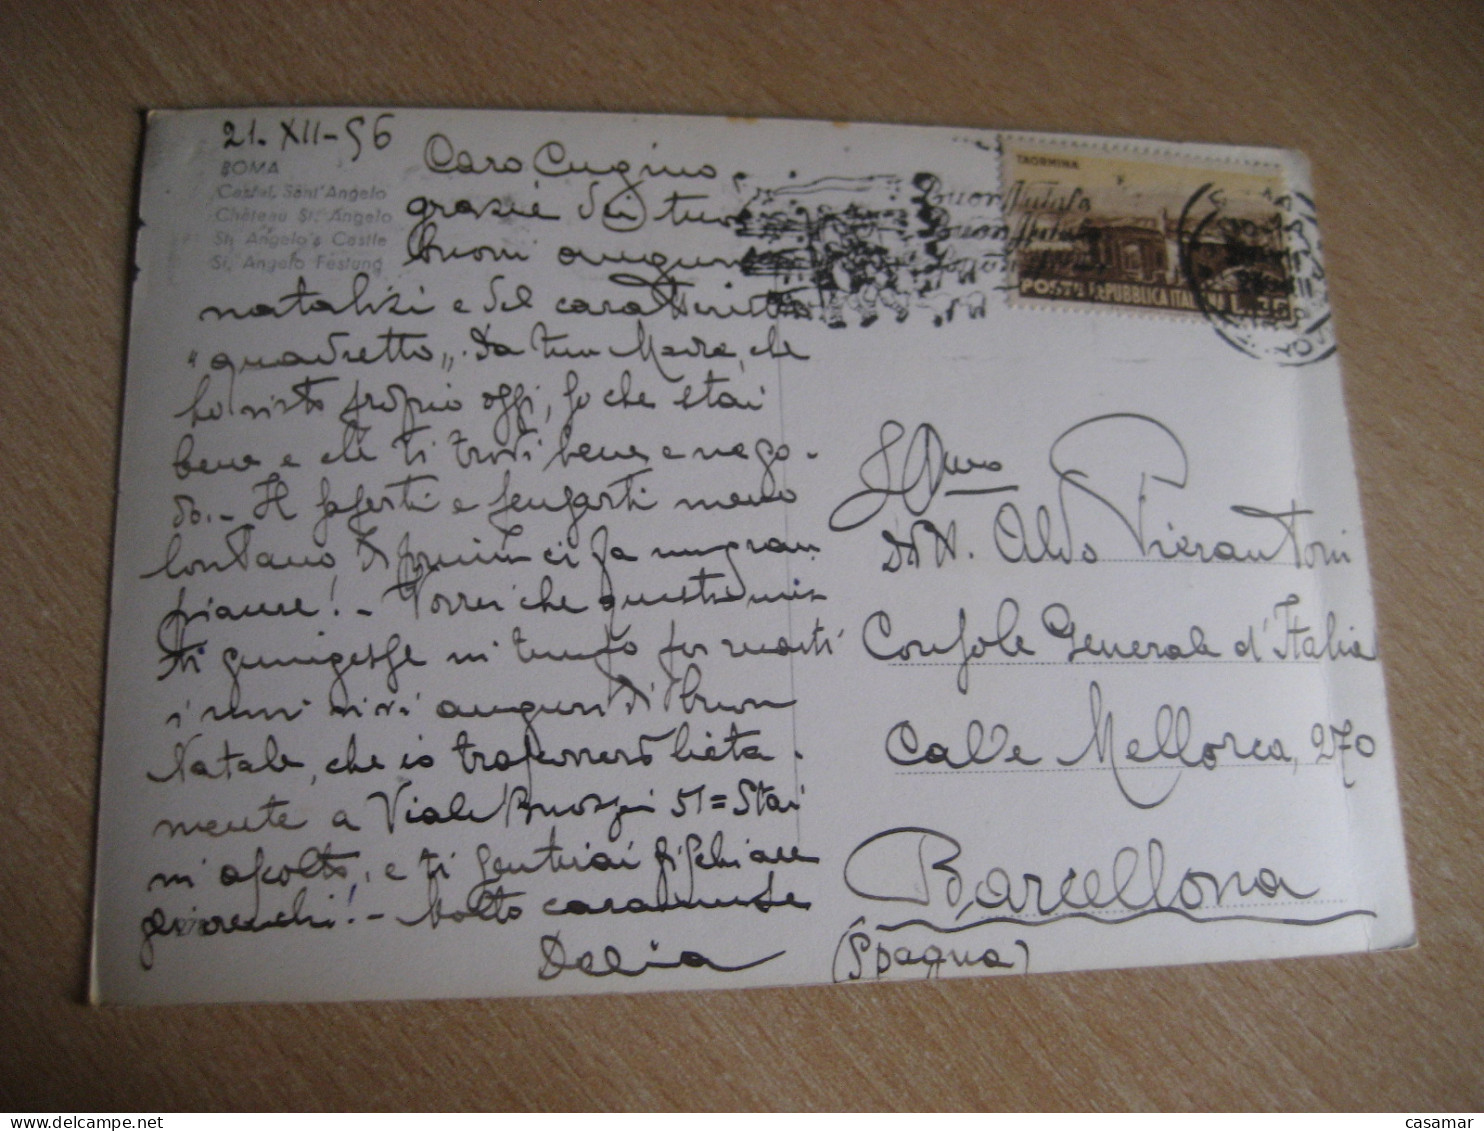 21. XII-56
ROMA
Castel Sant'Angelo
Château St. Angelo
St. Angelo's Castle
St. Angelo Festung
Caro Cugino,
grazie dei tuoi
buoni auguri
natalizi e del caratteristico
"quadretto". Da tua Madre, che
ho visto proprio oggi, so che stai
bene e che ti trovi bene e nego-
do. - Il saperti e pensarti meno
lontano, ci fa un gran
piacere! - Vorrei che questa mia
ti giungesse in tempo per recarti
i miei vivi auguri di buon
Natale, che io trascorrerò lieta-
mente a Viale Buozzi 51 = Stai
in ascolto, e ti sentirai fischiare
gli orecchi! - Molto caramente
Delia
TAORMINA
POSTE REPUBBLICA ITALIANA L. 35
Buon Natale
Buon Natale
Dott. Aldo Pierantoni
Console Generale d'Italia
Calle Mallorca, 270
Barcellona
(Spagna)
www.delcampe.net
casamar